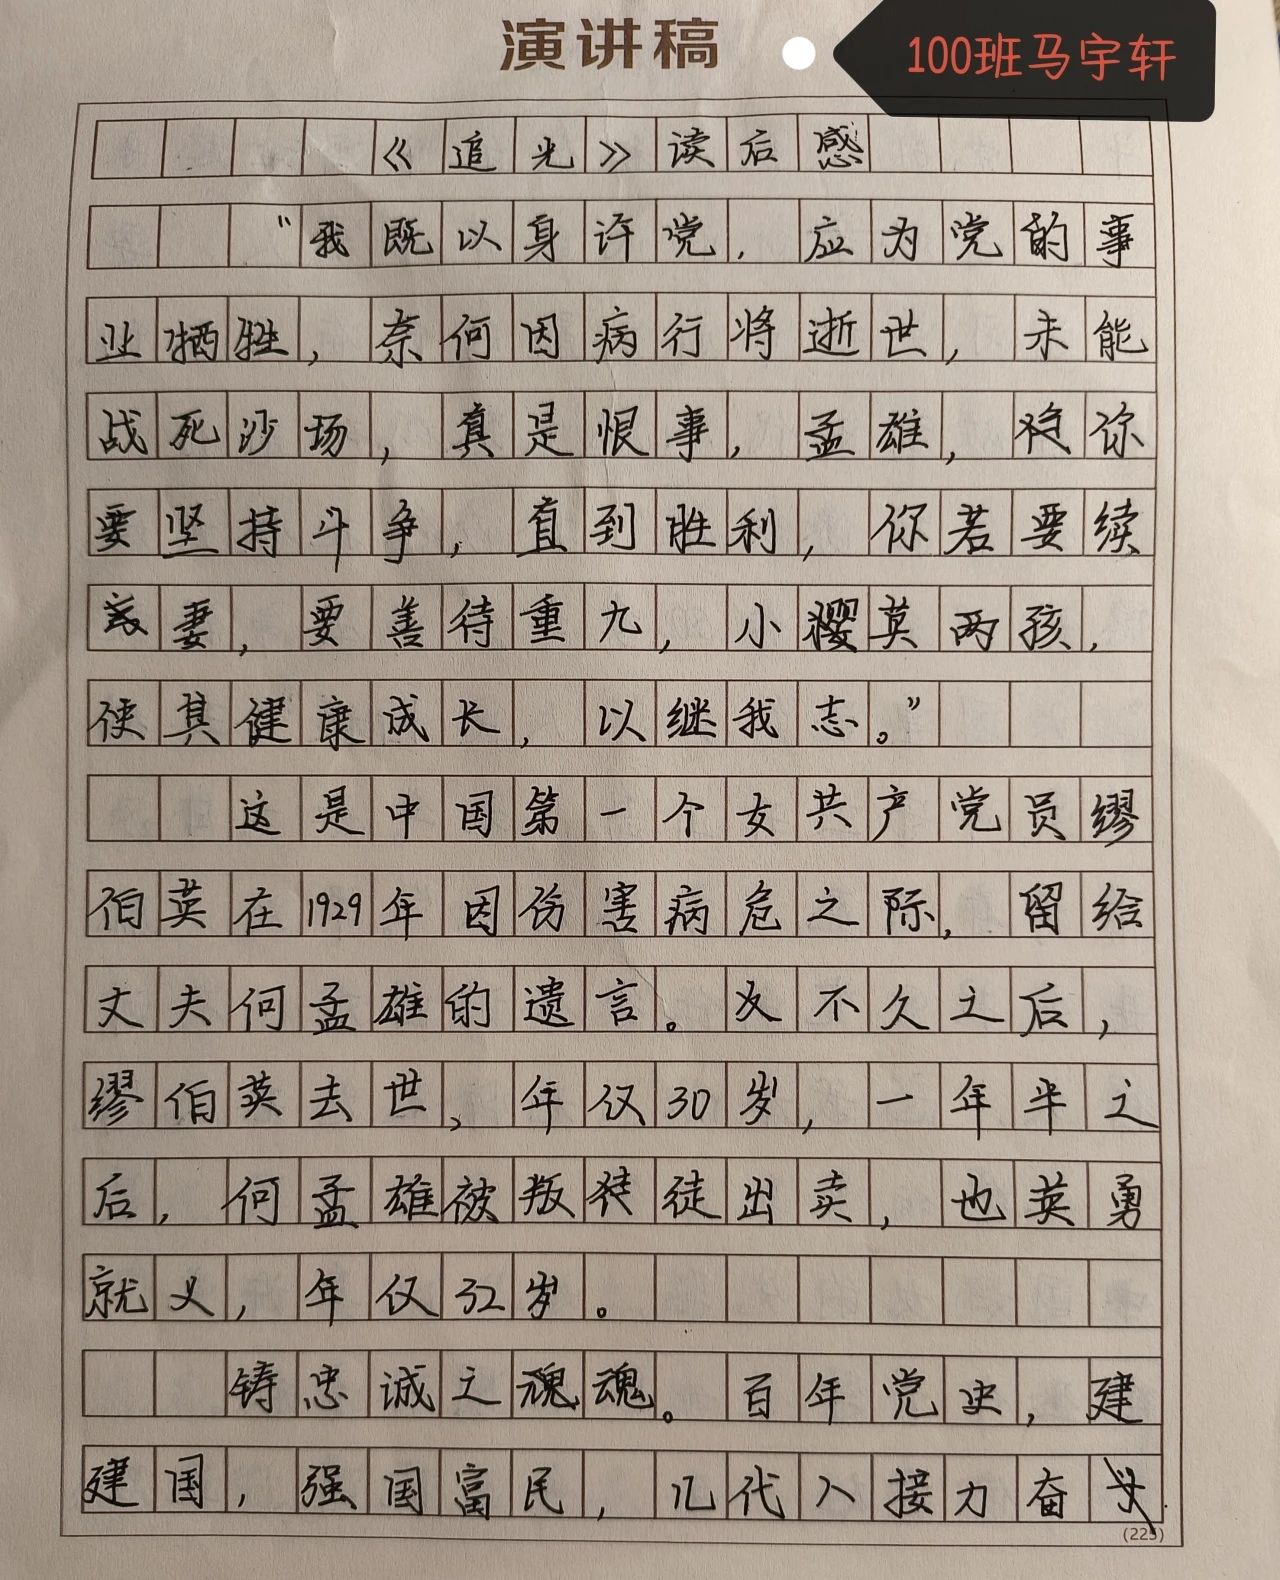 演讲稿
100班马宇轩
《追光》读后感
“我既以身许党，应为党的事
业牺牲，奈何因病行将逝世，未能
战死沙场，真是恨事，孟雄，你
要坚持斗争，直到胜利，你若要续
妻，要善待重九，小樱英两孩，
使其健康成长，以继我志。”
这是中国第一个女共产党员缪
伯英在1929年因伤害病危之际，留给
丈夫何孟雄的遗言。又不久之后，
缪伯英去世，年仅30岁，一年半之
后，何孟雄被叛徒出卖，也英勇
就义，年仅32岁。
铸忠诚之魂魂。百年党史，建
建国，强国富民，几代人接力奋斗
(225)